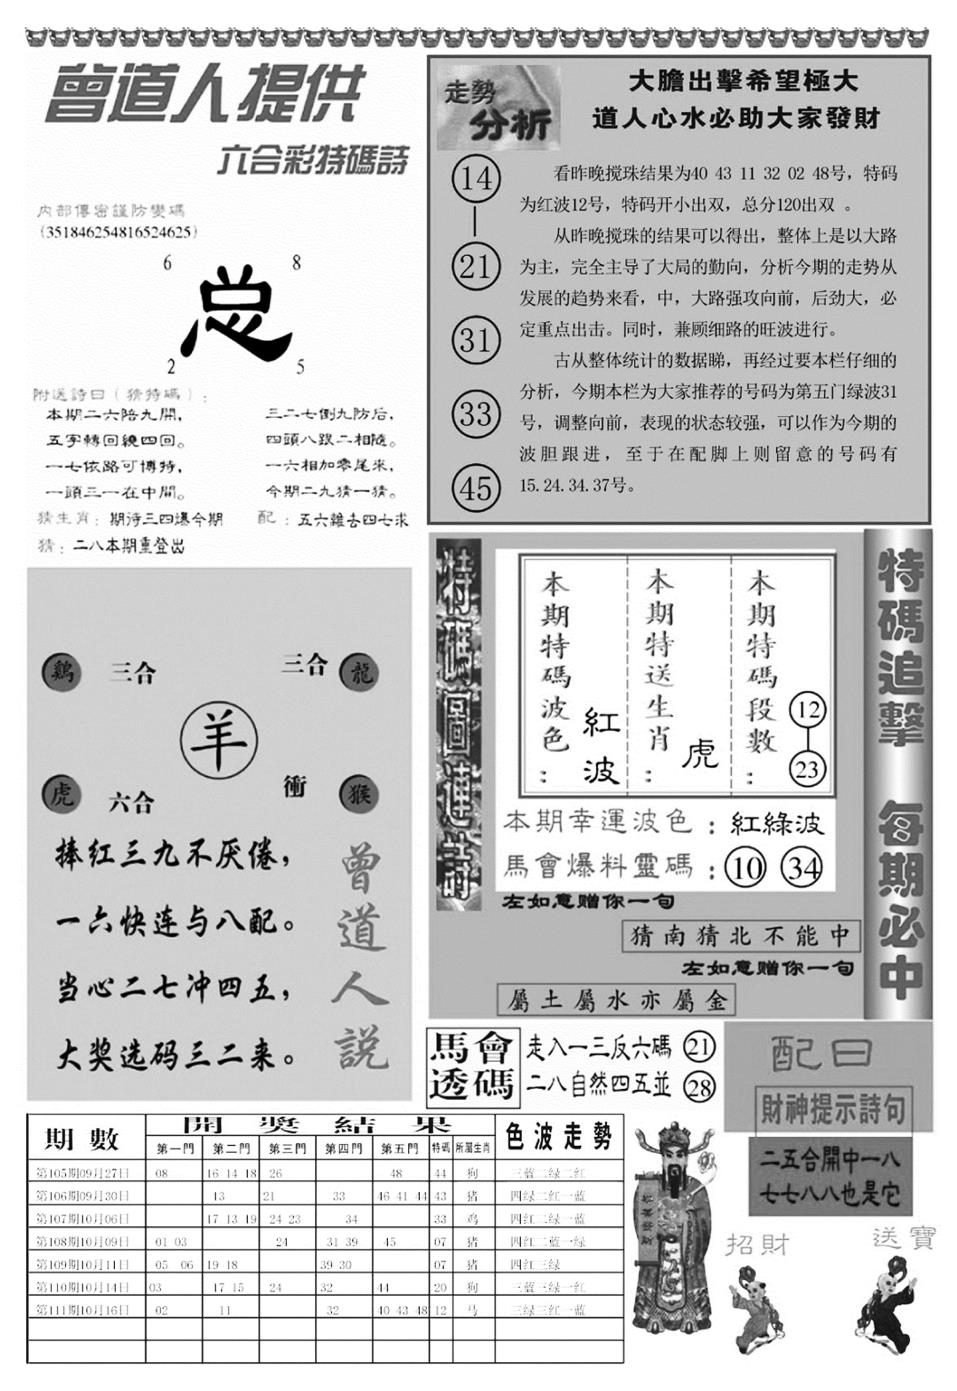 曾道人提供
六合彩特碼詩
內部傳密謹防變碼
(351846254816524625)
6 8
总
2 5
附送詩曰(猜特碼):
本期二六陪九開，
三二七倒九防后，
五字轉回繞四回。
四頭八跟二相隨。
一七依路可博特，
一六相加零尾來，
一頭三一在中間。
今期二九猜一猜。
猜生肖: 期待三四爆今期
配: 五六雜去四七求
猜: 二八本期重登出
走勢
分析
大膽出擊希望極大
道人心水必助大家發財
14
21
31
33
45
看昨晚搅珠结果为40 43 11 32 02 48号，特码
为红波12号，特码开小出双，总分120出双 。
从昨晚搅珠的结果可以得出，整体上是以大路
为主，完全主导了大局的勤向，分析今期的走势从
发展的趋势来看，中，大路强攻向前，后劲大，必
定重点出击。同时，兼顾细路的旺波进行。
古从整体统计的数据睇，再经过要本栏仔细的
分析，今期本栏为大家推荐的号码为第五门绿波31
号，调整向前，表现的状态较强，可以作为今期的
波胆跟进，至于在配脚上则留意的号码有
15.24.34.37号。
鷄 三合
三合 龍
羊
虎 六合
衝 猴
捧红三九不厌倦，
一六快连与八配。
当心二七冲四五，
大奖选码三二来。
曾道人説
本期特碼波色:
紅波
本期特送生肖:
虎
本期特碼段數:
12
23
本期幸運波色:紅綠波
馬會爆料靈碼: 10 34
左如意赠你一句
猜南猜北不能中
左如意赠你一句
屬土屬水亦屬金
特碼追擊 每期必中
馬會
透碼
走入一三反六碼 21
二八自然四五並 28
配曰
財神提示詩句
二五合開中一八
七七八八也是它
招財
送寶
期數 開獎結果 色波走勢
第一門 第二門 第三門 第四門 第五門 特碼 所屬生肖
第105期09月27日 08 16 14 18 26 48 44 狗 三蓝二绿二红
第106期09月30日 13 21 33 46 41 44 43 猪 四绿二红一蓝
第107期10月06日 17 13 19 24 23 34 33 鸡 四红二绿一蓝
第108期10月09日 01 03 24 31 39 45 07 猪 四红二蓝一绿
第109期10月11日 05 06 19 18 39 30 07 猪 四红三绿
第110期10月14日 03 17 15 24 32 44 20 狗 三蓝三绿一红
第111期10月16日 02 11 32 40 43 48 12 马 三绿三红一蓝